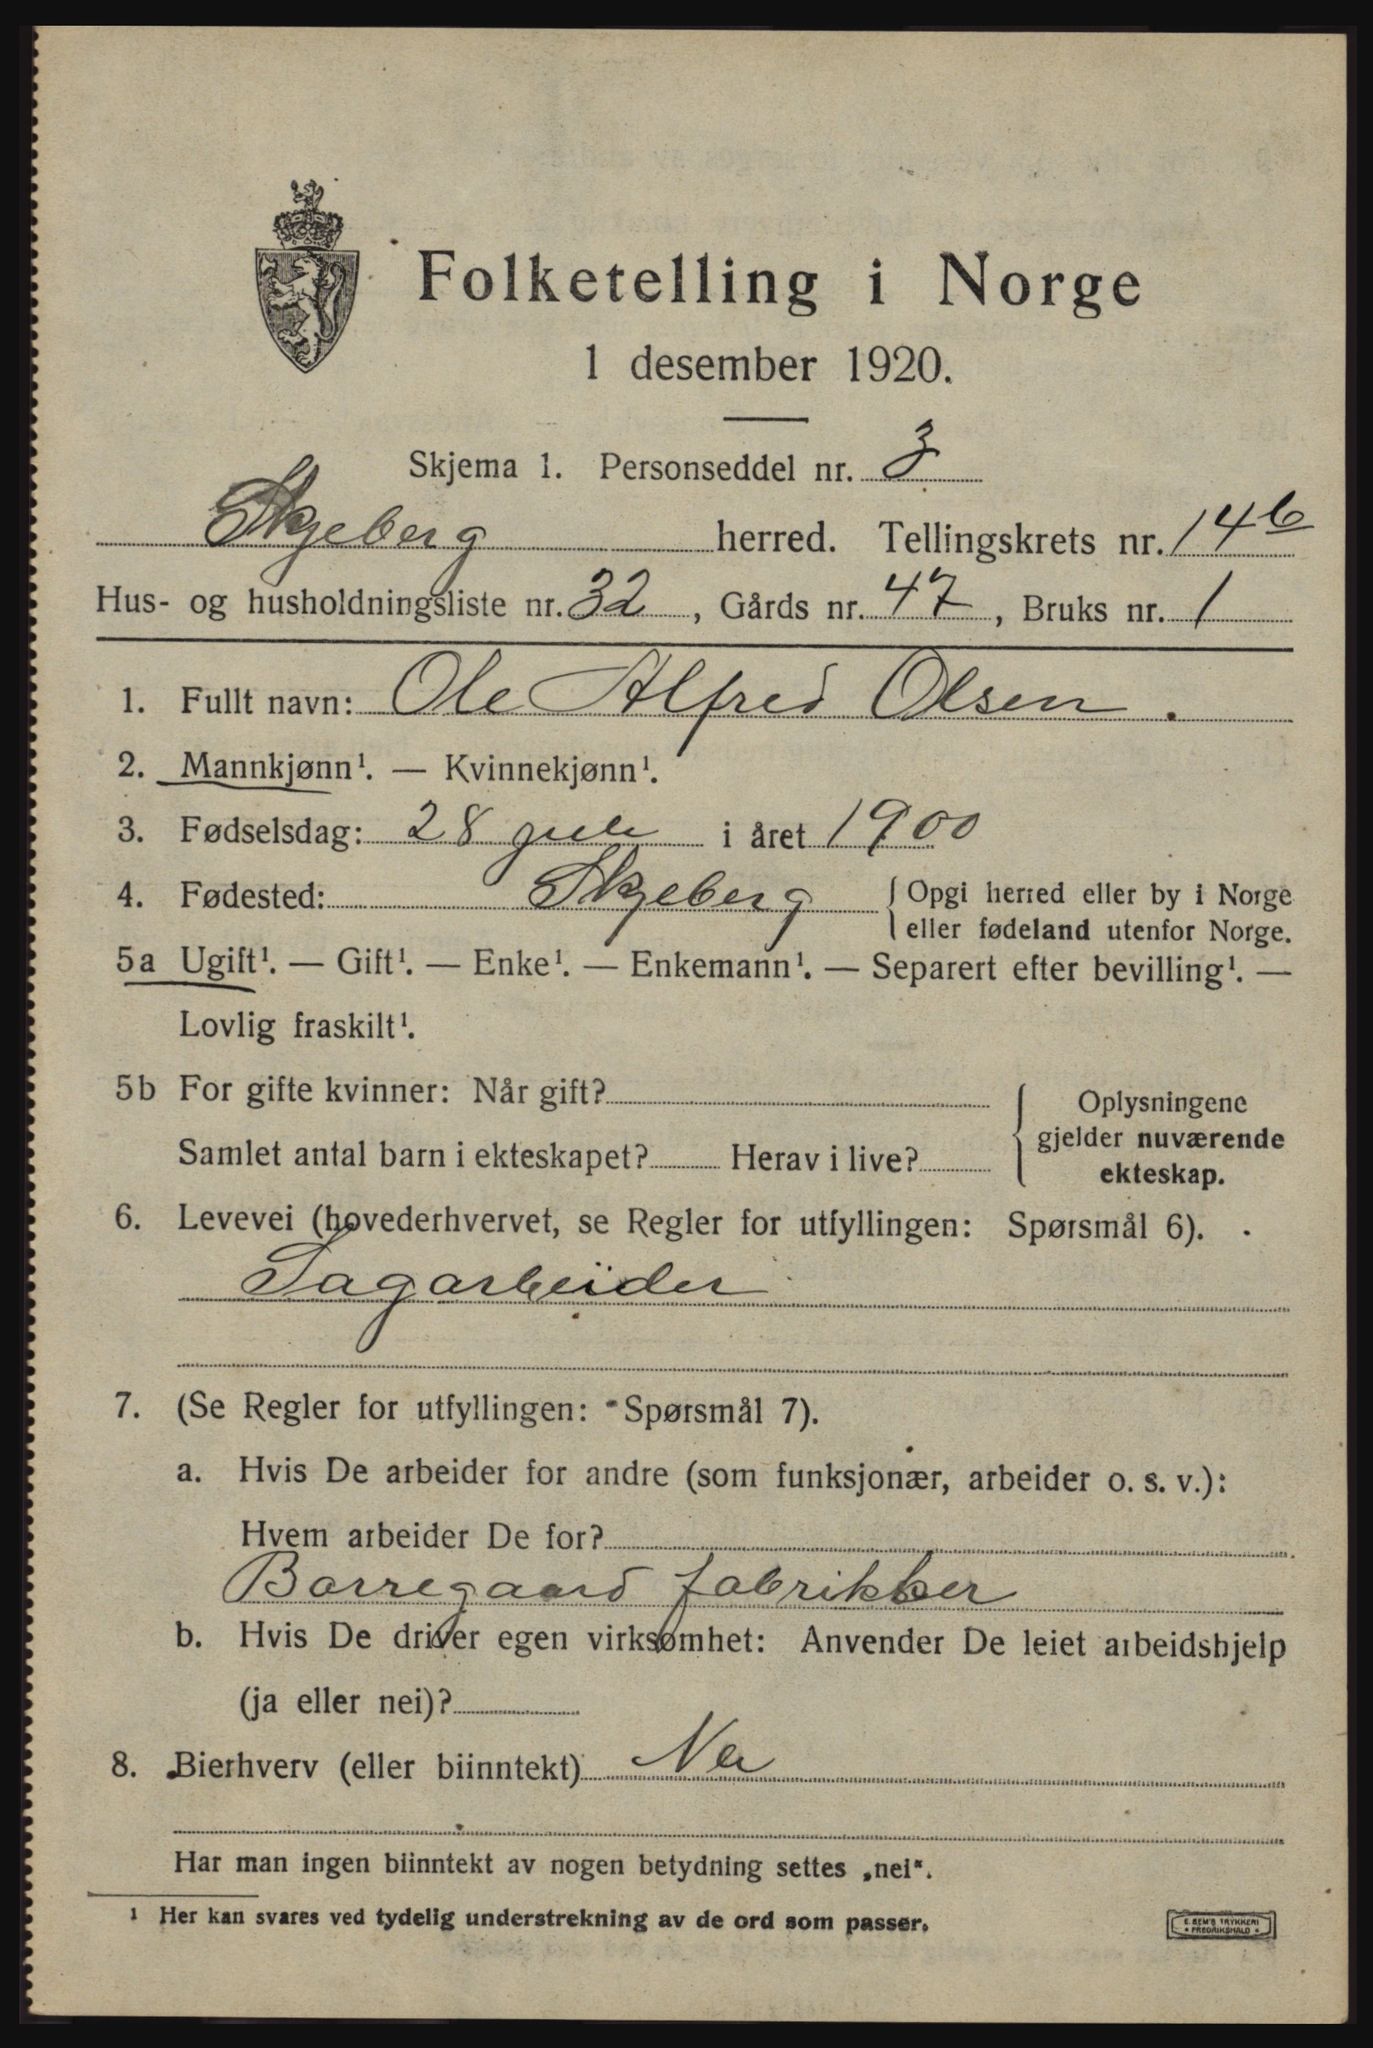 Folketelling i Norge
1 desember 1920.
Skjema 1. Personseddel nr. 3
Skjeberg herred. Tellingskrets nr. 14b
Hus- og husholdningsliste nr. 32, Gårds nr. 47, Bruks nr. 1
1. Fullt navn: Ole Alfred Olsen.
2. Mannkjønn¹. — Kvinnekjønn¹.
3. Fødselsdag: 28 juli i året 1900
4. Fødested: Skjeberg { Opgi herred eller by i Norge
eller fødeland utenfor Norge.
5a Ugift¹. — Gift¹. — Enke¹. — Enkemann¹. — Separert efter bevilling¹. —
Lovlig fraskilt¹.
5b For gifte kvinner: Når gift?
Samlet antal barn i ekteskapet? Herav i live?
Oplysningene
gjelder nuværende
ekteskap.
6. Levevei (hovederhvervet, se Regler for utfyllingen: Spørsmål 6).
Sagarbeider
7. (Se Regler for utfyllingen: Spørsmål 7).
a. Hvis De arbeider for andre (som funksjonær, arbeider o. s. v.):
Hvem arbeider De for?
Borregaard fabrikker
b. Hvis De driver egen virksomhet: Anvender De leiet arbeidshjelp
(ja eller nei)?
8. Bierhverv (eller biinntekt) Nei
Har man ingen biinntekt av nogen betydning settes „nei“.
¹ Her kan svares ved tydelig understrekning av de ord som passer.
E. SEM'S TRYKKERI
• FREDRIKSHALD •